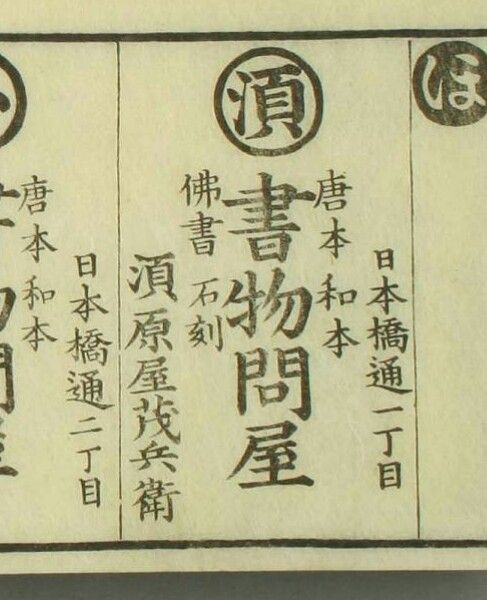 ほ
須
日本橋通一丁目
唐本和本
書物問屋
佛書石刻
須原屋茂兵衛
日本橋通二丁目
唐本和本